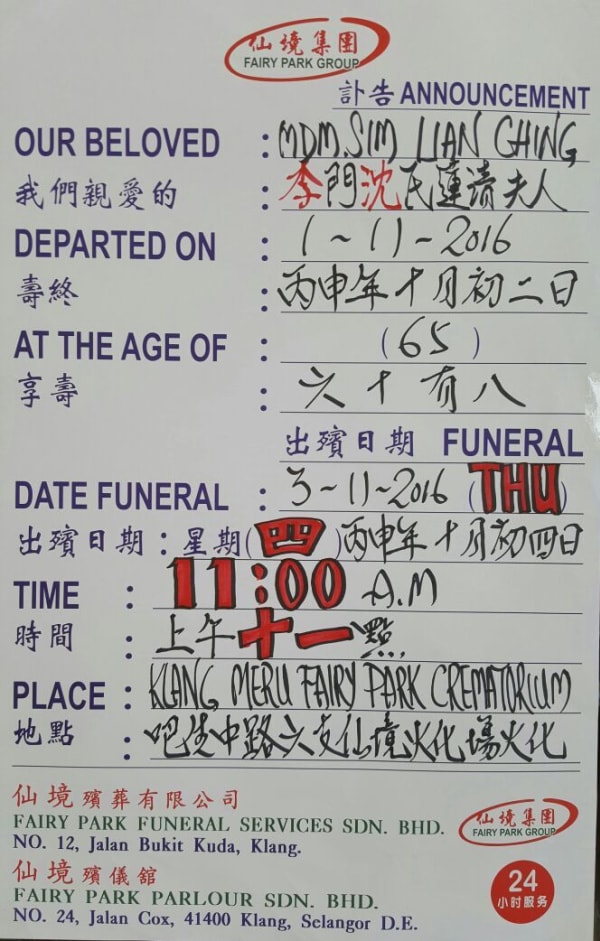 仙境集團
FAIRY PARK GROUP
訃告 ANNOUNCEMENT
OUR BELOVED : MDM. SIM LIAN CHING
我們親愛的 : 李門沈氏蓮清夫人
DEPARTED ON : 1~11-2016
壽終 : 丙申年十月初二日
AT THE AGE OF : (65)
享壽 : 六十有八
出殯日期 FUNERAL
DATE FUNERAL : 3-11-2016 (THU)
出殯日期：星期(四)丙申年十月初四日
TIME : 11:00 A.M
時間 : 上午十一點
PLACE : KLANG MERU FAIRY PARK CREMATORIUM
地點 : 吧生中路六支仙境火化場火化
仙境殯葬有限公司
FAIRY PARK FUNERAL SERVICES SDN. BHD.
NO. 12, Jalan Bukit Kuda, Klang.
仙境集團
FAIRY PARK GROUP
仙境殯儀舘
FAIRY PARK PARLOUR SDN. BHD.
NO. 24, Jalan Cox, 41400 Klang, Selangor D.E.
24
小时服务